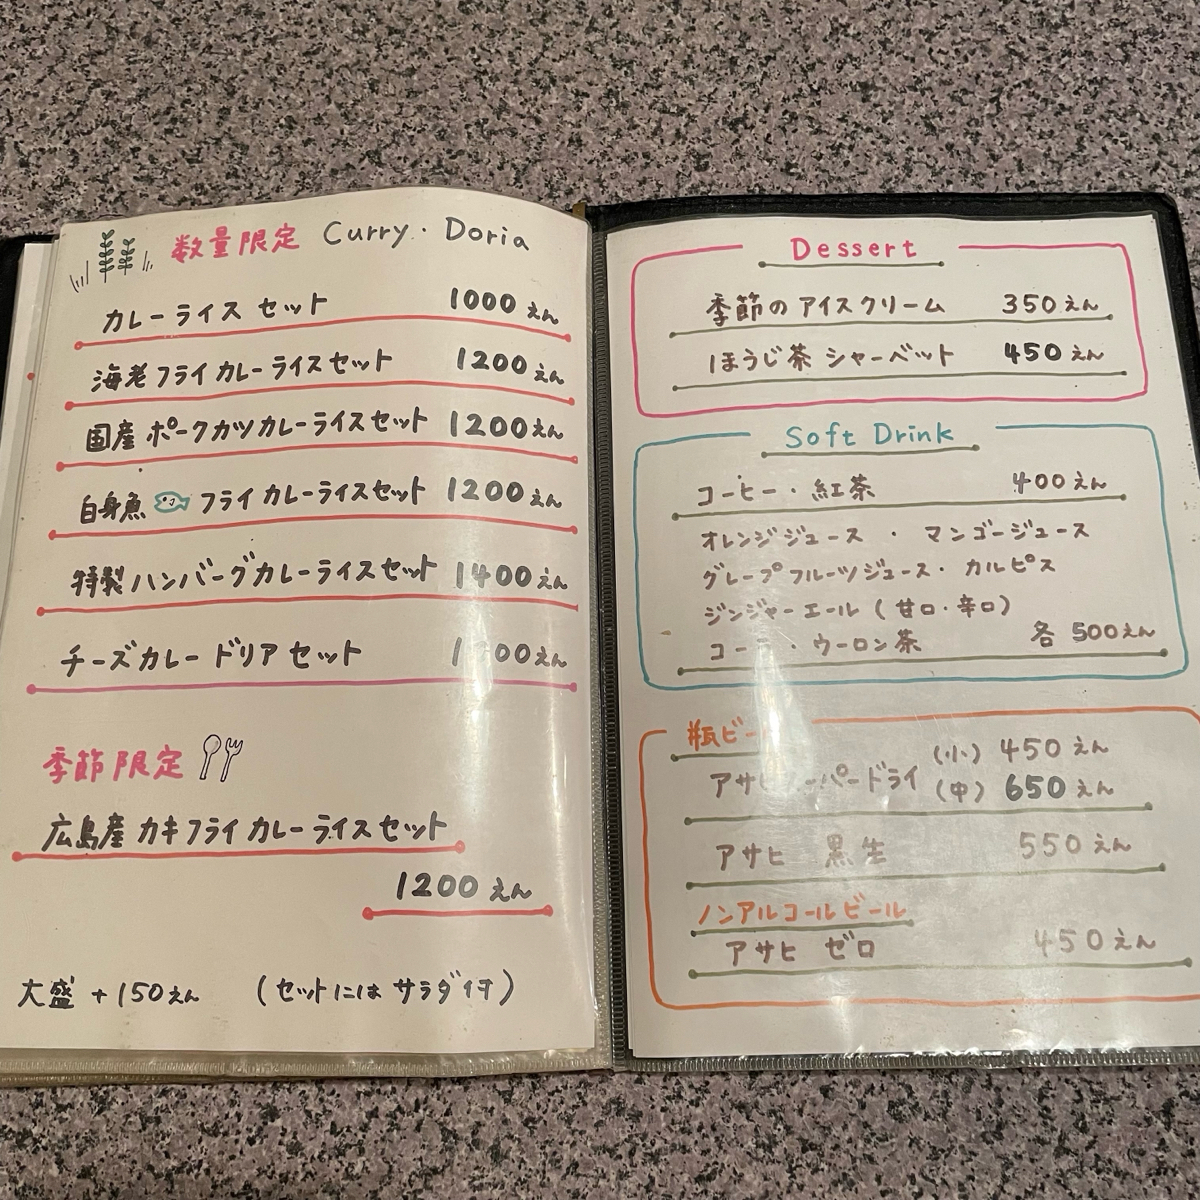 数量限定 Curry・Doria
カレーライス セット 1000えん
海老フライカレーライスセット 1200えん
国産ポークカツカレーライスセット 1200えん
白身魚フライカレーライスセット 1200えん
特製ハンバーグカレーライスセット 1400えん
チーズカレードリアセット
季節限定
広島産カキフライカレーライスセット
1200えん
大盛+150えん (セットにはサラダ付)
Dessert
季節のアイスクリーム 350えん
ほうじ茶シャーベット 450えん
Soft Drink
コーヒー・紅茶 400えん
オレンジジュース・マンゴージュース
グレープフルーツジュース・カルピス
ジンジャーエール(甘口・辛口)
ウーロン茶 各500えん
瓶ビール
(小) 450えん
アサヒスーパードライ (中) 650えん
アサヒ 黒生 550えん
ノンアルコールビール
アサヒ ゼロ 450えん